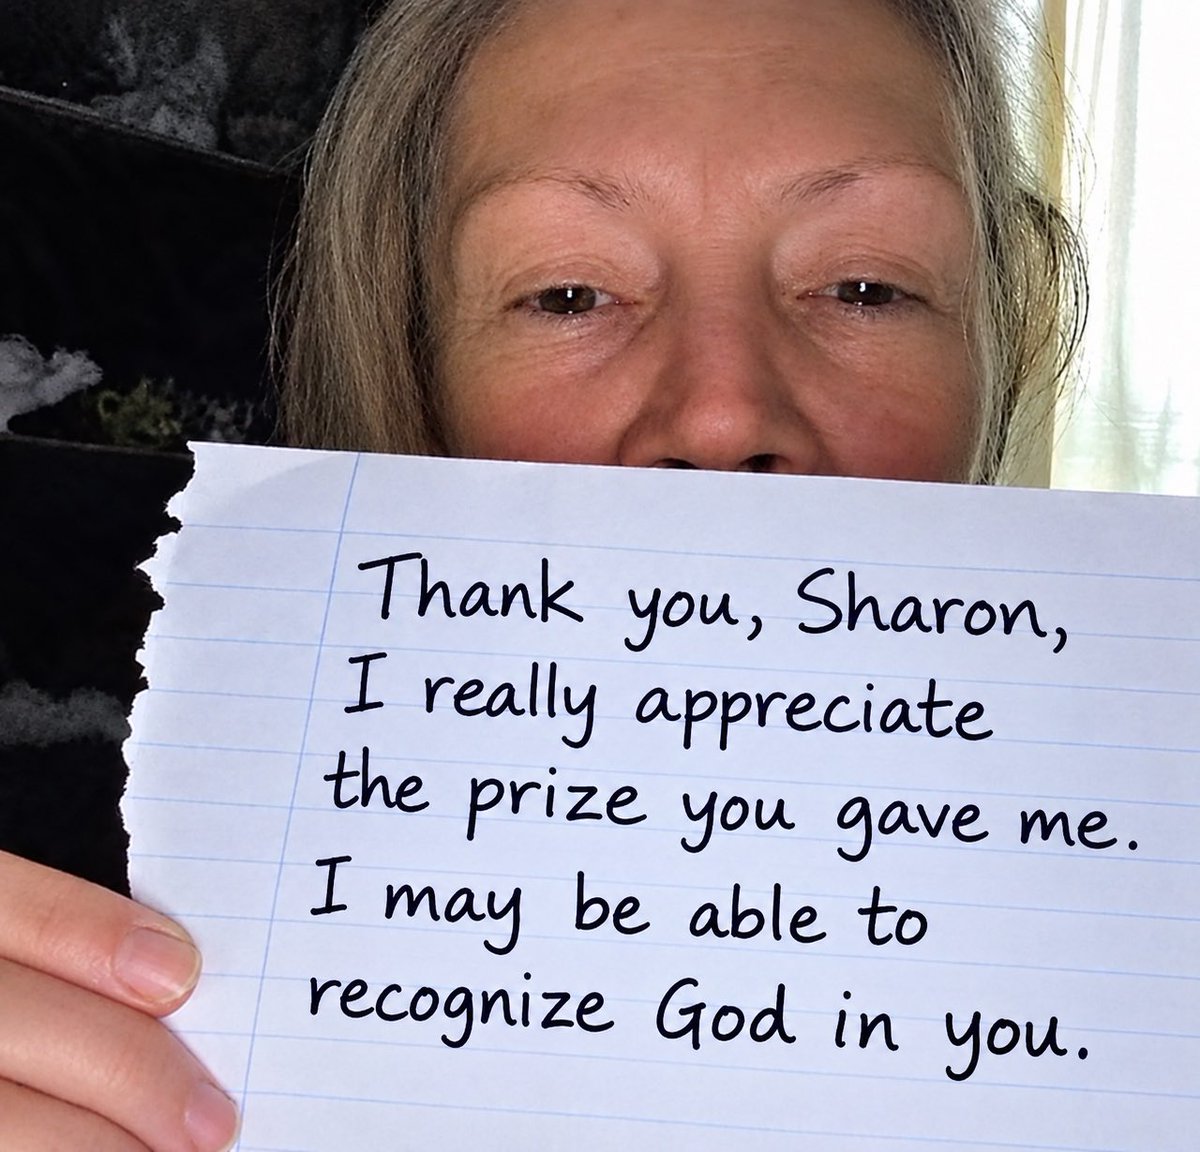 Thank you, Sharon,
I really appreciate
the prize you gave me.
I may be able to
recognize God in you.